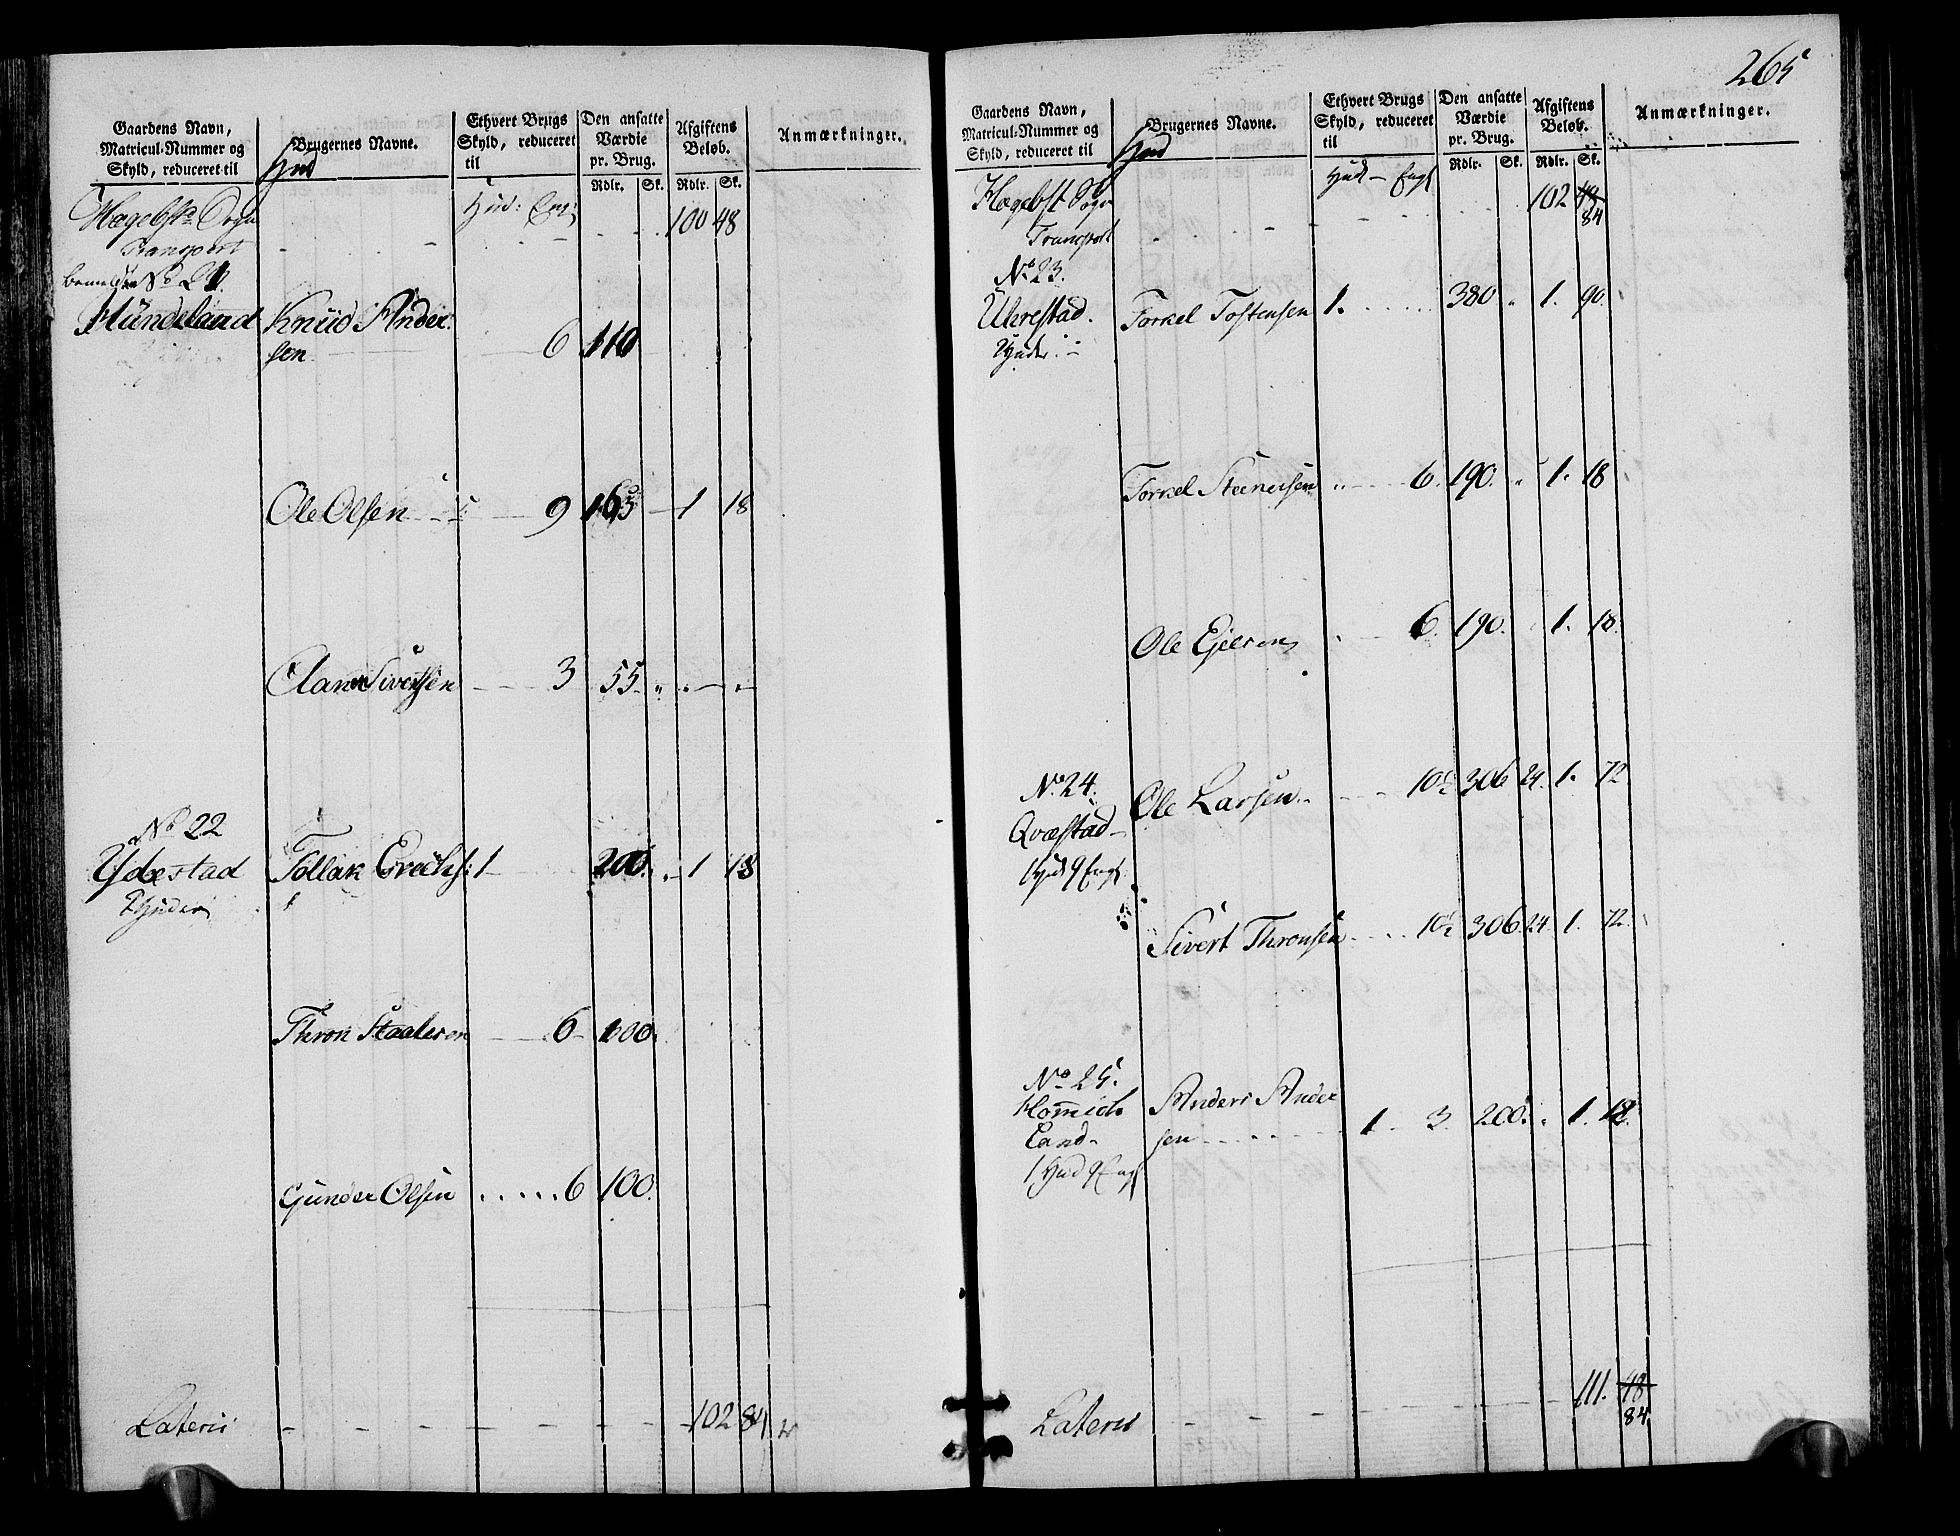 Gaardens Navn,
Matricul-Nummer og
Skyld, reduceret til
Hud
Brugernes Navne.
Ethvert Brugs
Skyld, reduceret
til
Den ansatte
Værdie
pr. Brug.
Rdlr. Sk.
Afgiftens
Beløb.
Rdlr. Sk.
Anmærkninger.
Hud: Eng:
Hægebst. Sogn
Transport - - - - - - 100 48
No 21.
Hundeland Knüd Ander:
sen. 6 110
Ole Olsen 9 165 1 18
Aanen Sivertsen 3 55 „ „ „
No 22
Ydestad Tollak Erichs: 1 200 „ 1 18
2 Huder
Thron Staalesen 6 100.
Gunder Olsen 6 100.
Lateris - - - - - - 102 84
265
Gaardens Navn,
Matricul-Nummer og
Skyld, reduceret til
Hud
Brugernes Navne.
Ethvert Brugs
Skyld, reduceret
til
Den ansatte
Værdie
pr. Brug.
Rdlr. Sk.
Afgiftens
Beløb.
Rdlr. Sk.
Anmærkninger.
Hud - Eng
Hægebst Sogn 102 48
Transport 84
No 23.
Uhrestad. Torkel Tostensen 1. 380 „ 1. 90.
2 Huder
Torkel Steenersen „ 6. 190. „ 1. 18
Ole Ejelsen 6. 190. 1. 18.
No 24. Ole Larsen 10½ 306 24. 1. 72
Qvæstad
1 Hud 9 Eng
Sivert Thronsen 10½ 306 24. 1. 72.
No 25.
Homme ich
Land Anders Ander
sen 1. 3. 200. „ 1. 18.
1 Hud 9 Eng
111. 48
Lateris - - - - - - 84.